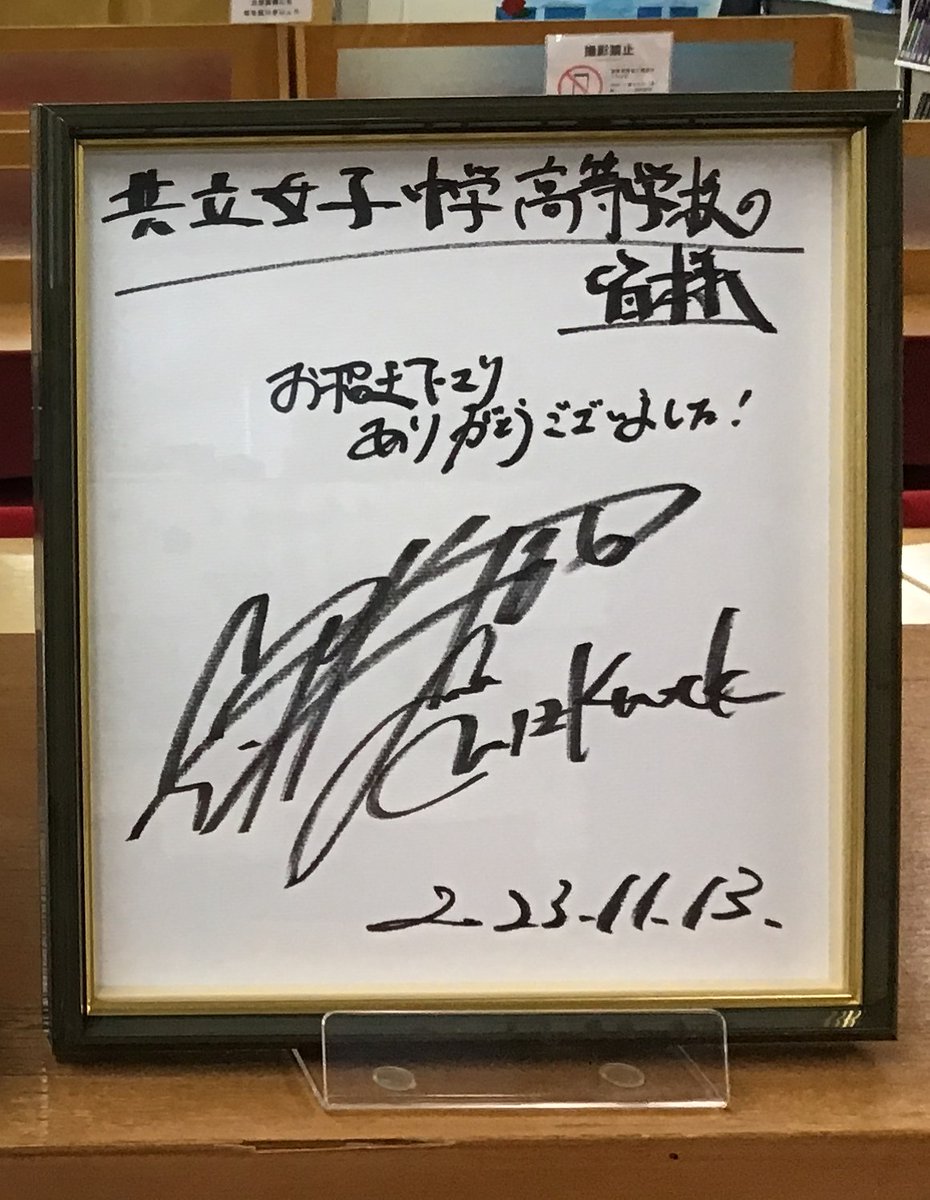 撮影禁止
共立女子中学高等学校の
皆様
お招き下さり
ありがとうございました!
QuizKnock
2023.11.13.